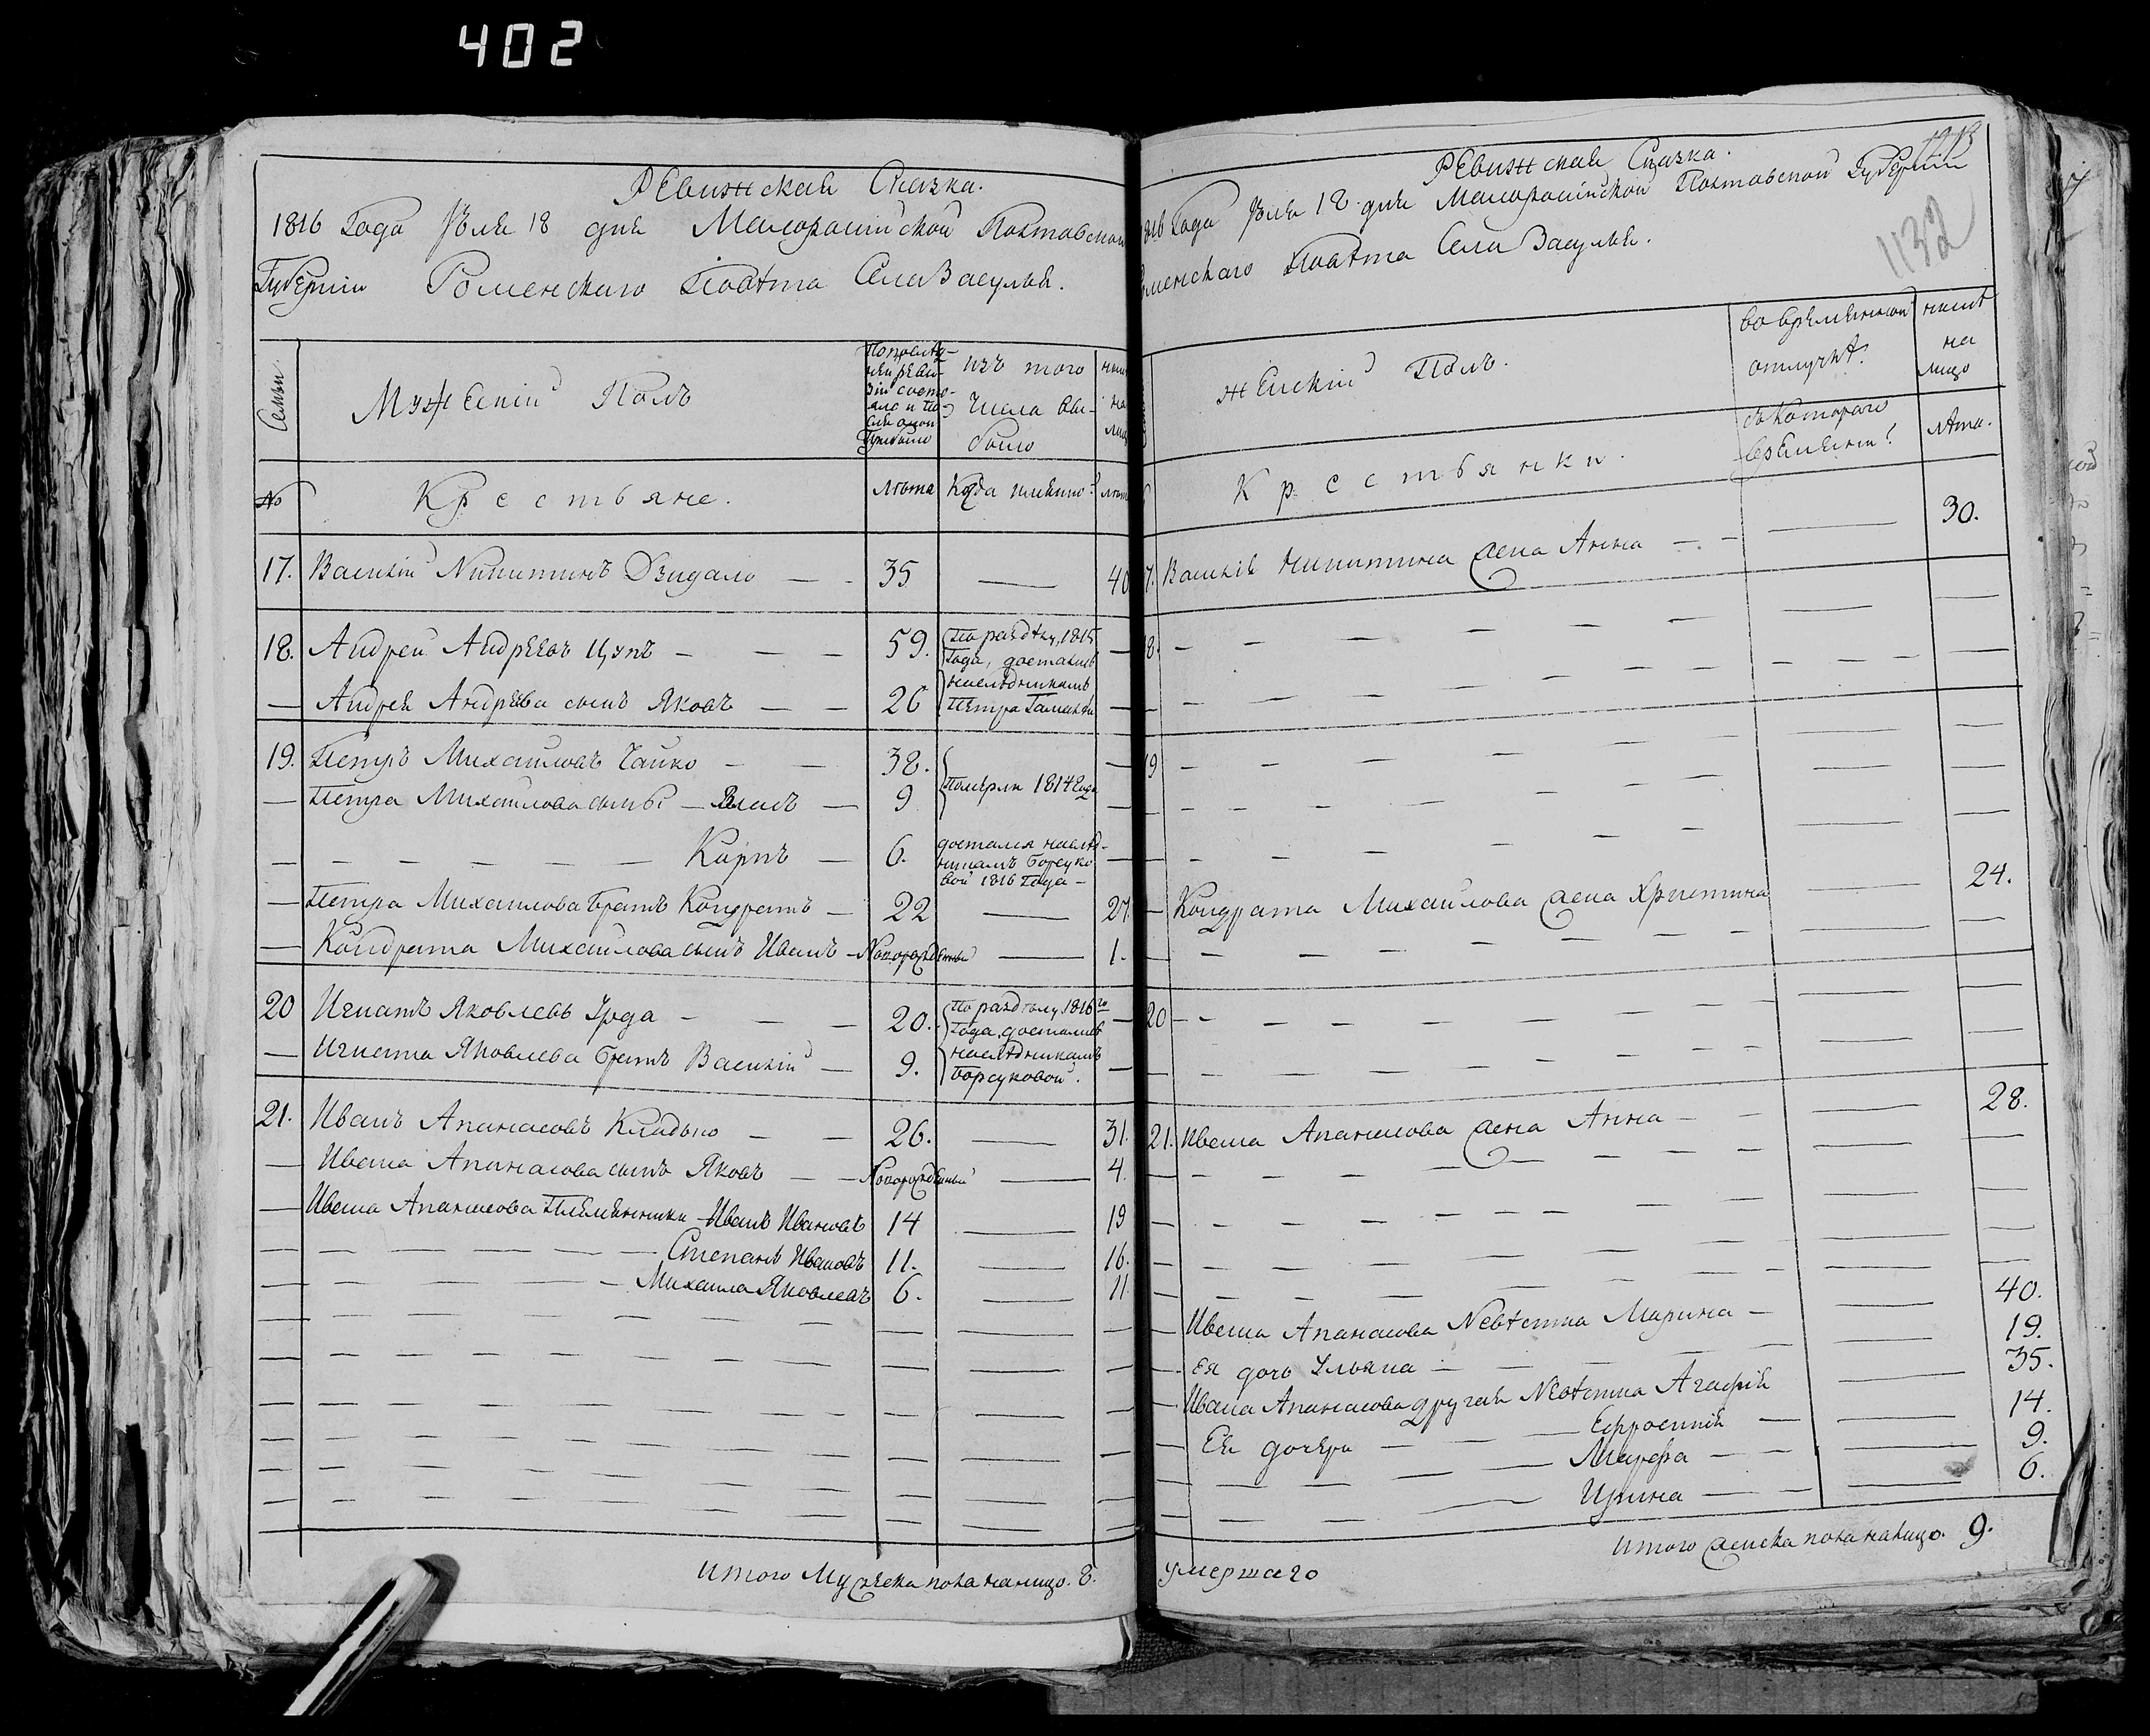 402
Ревизская Сказка.
1816 Года Июля 18 дня Малоросiйской Полтавской
Губернiи Роменского Повѣта Села Засулья.
Семьи
Мужескiй Полъ
По послѣд-
ней реви-
зiи состо-
яло и по-
слѣ оной
прибыло
изъ того
числа вы-
было
№
Крестьяне.
лѣта
Когда имянно?
лѣта
17. Василiй Никитинъ Дзидало — - 35 — 40
18. Андрей Андреевъ Цупъ - — — 59. По раздѣлу, 1815 —
Года, достались
— Андрея Андреева сынъ Яковъ — — 26 наслѣдникамъ —
Петра
19. Петръ Михайловъ Чайко - — 38. —
Померли 1814 Года
— Петра Михайлова сыны — Власъ — 9 —
— — — — — — Карпъ — 6. достался наслѣд- —
никамъ Борсуко
вой 1816 Года —
— Петра Михайлова братъ Кондратъ — 22 — 27.
— Кондрата Михайлова сынъ Иванъ - Новорожденный — 1.
20 Игнатъ Яковлевъ - — — 20. По раздѣлу, 1816го —
Года, достались
— Игната Яковлева братъ Василiй — 9. наслѣдникамъ —
Борсуковой.
21. Иванъ Апанасовъ Кладько — — 26. — 31.
— Ивана Апанасова сынъ Яковъ — — Новорожденный — 4.
— Ивана Апанасова Племянники - Иванъ Ивановъ 14 — 19
— — — — — Степанъ Ивановъ 11. — 16.
— — — — — Михаила Яковлевъ 6. — 11
Итого Мужеска пола налицо. 8.
1132
Ревизская Сказка.
Года Июля 18 дня Малоросiйской Полтавской Губернiи
Повѣта Села Засулья.
Женскiй Полъ.
Во временной
отлучкѣ.
нынѣ
на
лицо
Крестьянки.
Съ котораго
времени?
лѣта.
Василiя Никитина жена Анна — - — 30.
18. - — — — — —
19 - — — — — —
— Кондрата Михайлова жена Христина — 24.
20 - — — — — —
21. Ивана Апанасова жена Анна — — — 28.
— Ивана Апанасова Невѣстка Марина — — 40.
— Ея дочь Ульяна — — — 19.
— Ивана Апанасова другая Невѣстка Агафiя — 35.
— Ея дочери — — — Ефросинiя — — 14.
— — — Марфа — — — 9.
— — — Ирина — — — 6.
Итого женска пола налицо. 9.
умершаго